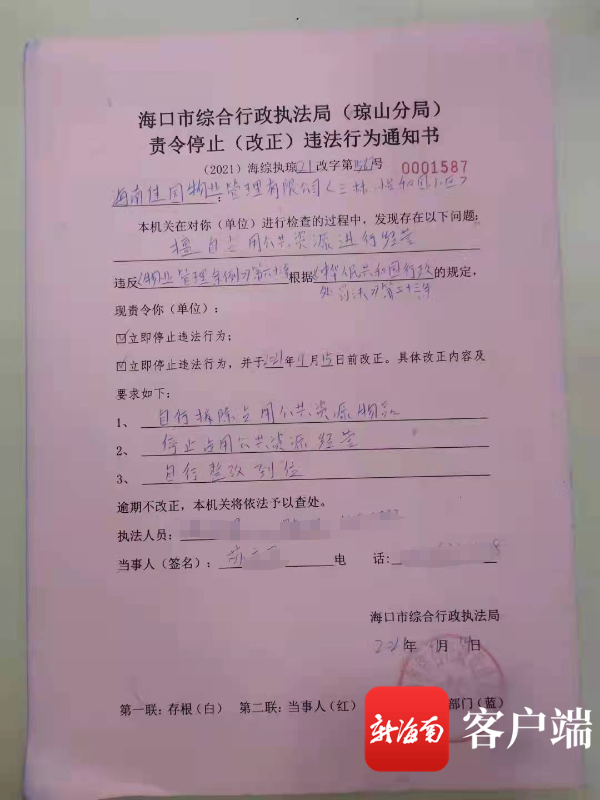 海口市综合行政执法局（琼山分局）
责令停止（改正）违法行为通知书
（2021）海综执琼21改字第号 0001587
海南佳园物业管理有限公司
本机关在对你（单位）进行检查的过程中，发现存在以下问题：
擅自占用公共资源进行经营
违反《物业管理条例》第六十 根据《中华人民共和国行政
处罚法》第二十三条 的规定，
现责令你（单位）：
☑立即停止违法行为；
☑立即停止违法行为，并于2021年11月15日前改正。具体改正内容及
要求如下：
1、自行拆除占用公共资源物品
2、停止占用公共资源经营
3、自行整改到位
逾期不改正，本机关将依法予以查处。
执法人员：
当事人（签名）： 电 话：
海口市综合行政执法局
2021年 月 日
第一联：存根（白） 第二联：当事人（红） 部门（蓝）
新海南 客户端